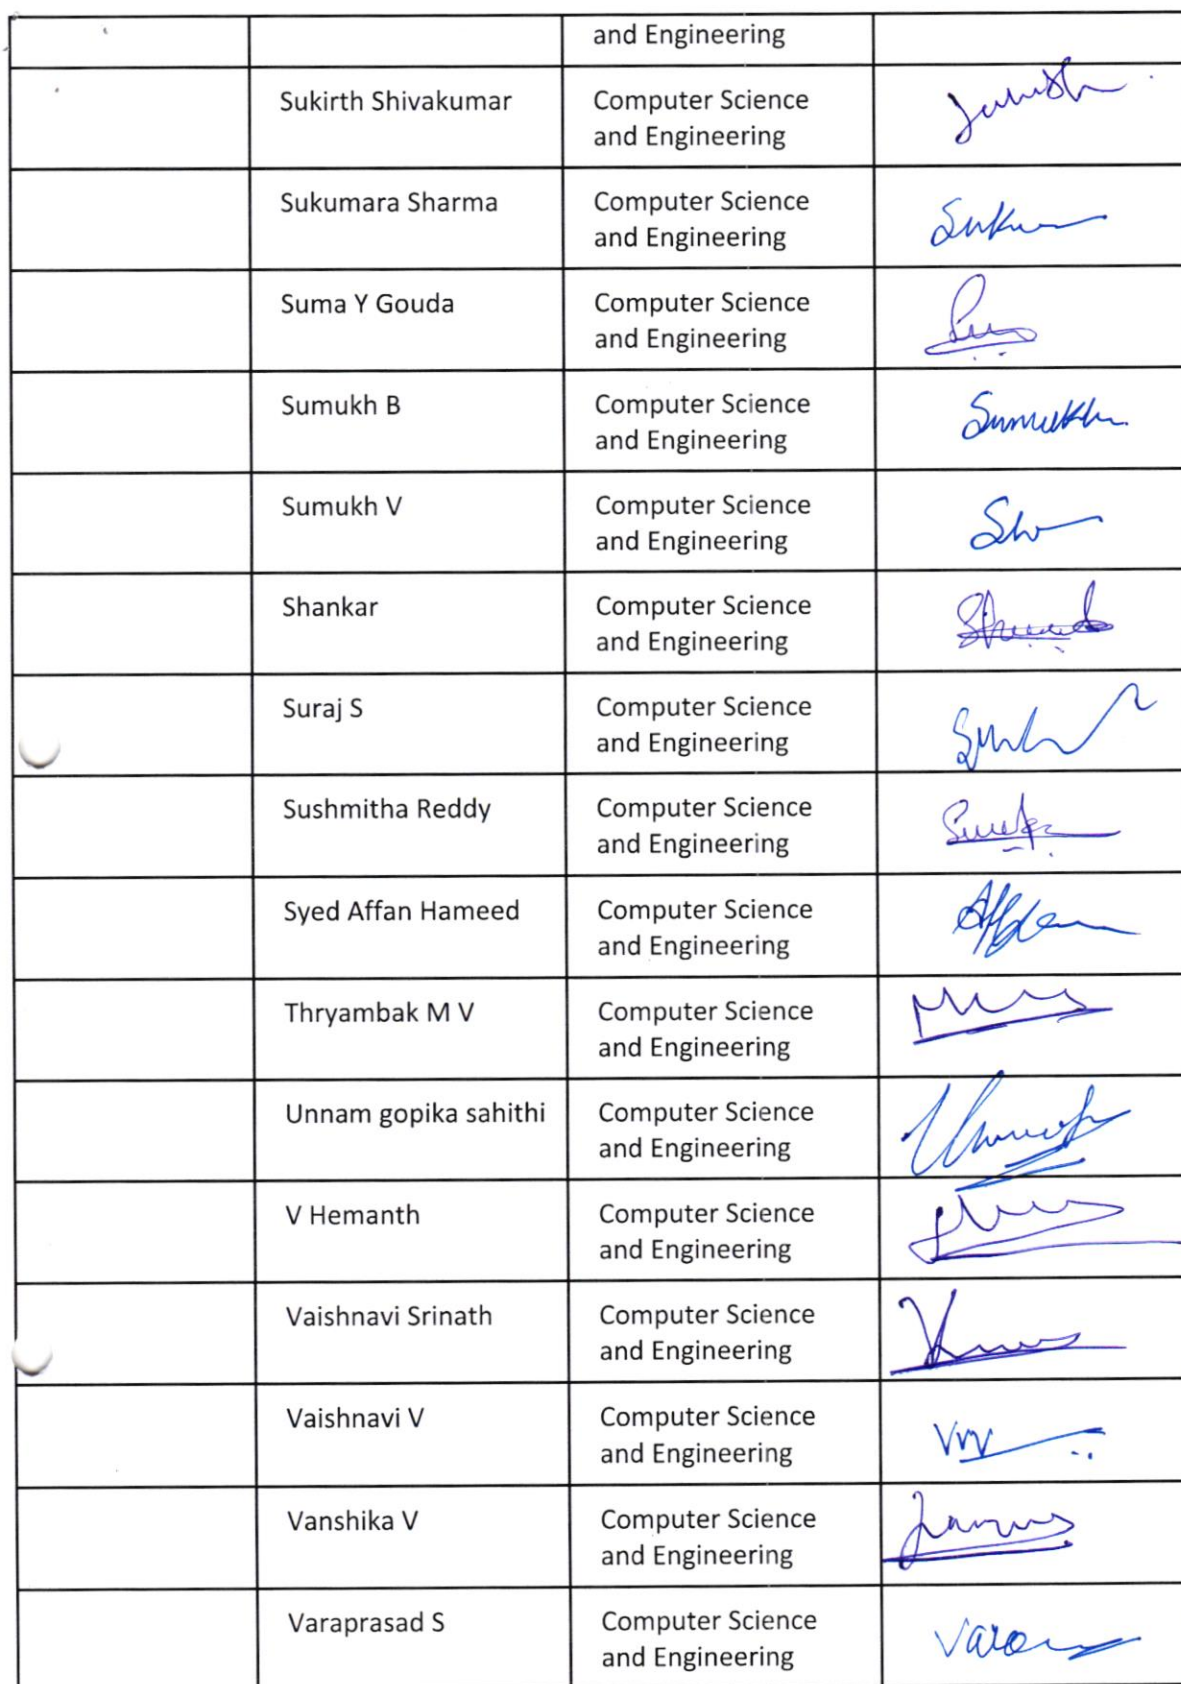 and Engineering
Sukirth Shivakumar Computer Science
and Engineering
Sukumara Sharma Computer Science
and Engineering
Suma Y Gouda Computer Science
and Engineering
Sumukh B Computer Science Sumukh
and Engineering
Sumukh V Computer Science
and Engineering
Shankar Computer Science
and Engineering
Suraj S Computer Science
and Engineering
Sushmitha Reddy Computer Science
and Engineering
Syed Affan Hameed Computer Science
and Engineering
Thryambak M V Computer Science
and Engineering
Unnam gopika sahithi Computer Science
and Engineering
V Hemanth Computer Science
and Engineering
Vaishnavi Srinath Computer Science
and Engineering
Vaishnavi V Computer Science
and Engineering
Vanshika V Computer Science
and Engineering
Varaprasad S Computer Science
and Engineering